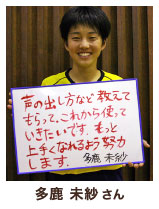 声の出し方など教えて
もらって、これから使って
いきたいです。もっと
上手くなれるよう努力
します。
多鹿 未紗
多鹿 未紗さん